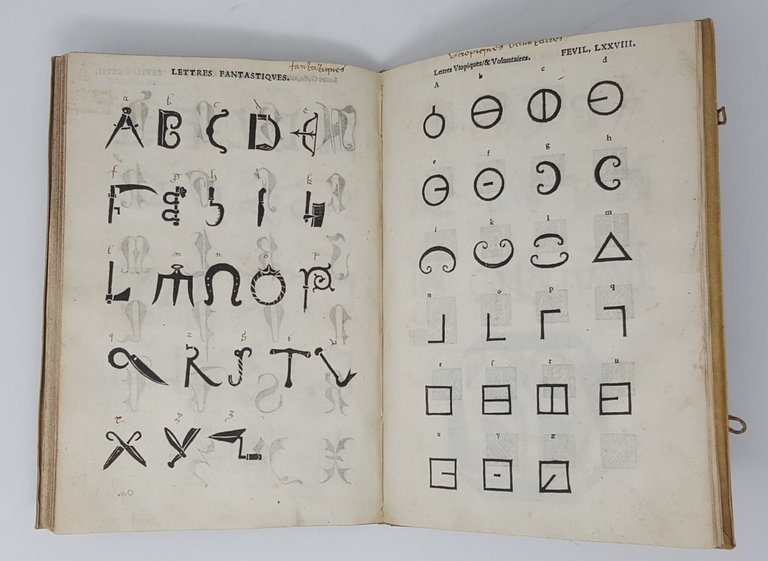 fantastiques
LETTRES FANTASTIQVES.
a b c d e
A B C D E
f g h i k
F G H I K
l m n o p
L M N O P
q r s t v
Q R S T V
x y z
X Y Z
Vtopiques Voluntaires
Lettres Vtopiques, & Voluntaires. FEVIL, LXXVIII.
A b c d
e f g h
i k l m
n o p q
r ſ t u
x y z